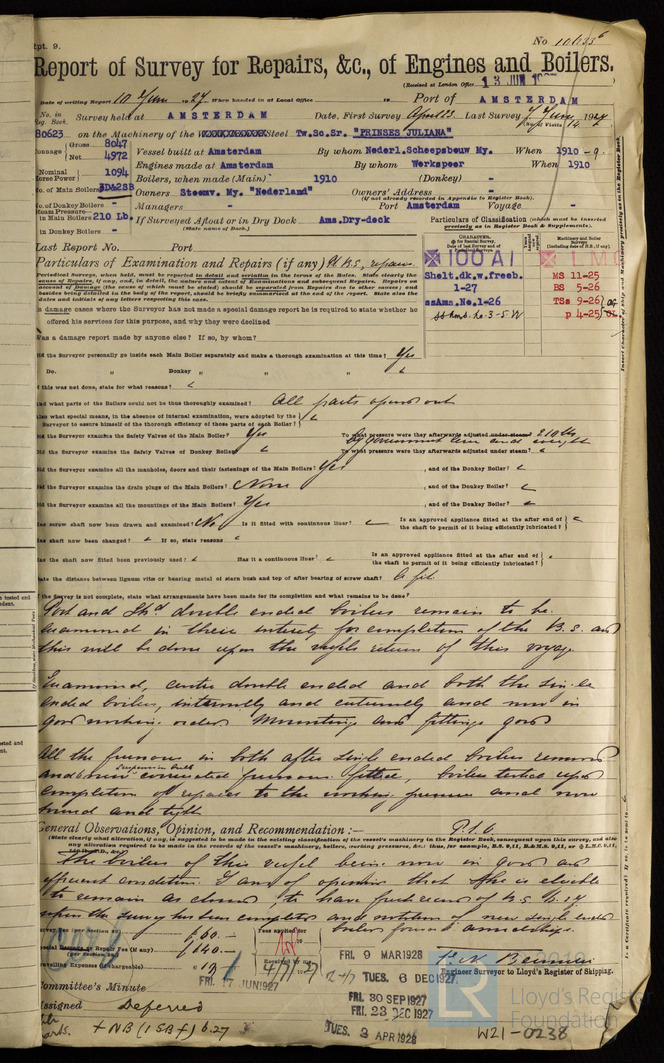 Rpt. 9.
No
Report of Survey for Repairs, &c., of Engines and Boilers.
(Received at London Office 13 JUN
Date of writing Report 10 June 1927 When handed in at Local Office
Port of AMSTERDAM
No. in Reg. Book. Survey held at AMSTERDAM Date, First Survey April 23 Last Survey 7 June 1927
(No. of Visits 14
80623 on the Machinery of the Steel Tw.Sc.Sr. "PRINSES JULIANA"
Tonnage Gross 8047
Net 4972
Vessel built at Amsterdam By whom Nederl.Scheepsbouw My. When 1910 -9
Engines made at Amsterdam By whom Werkspoor When 1910
Nominal Horse Power 1094
Boilers, when made (Main) 1910 (Donkey) -
No. of Main Boilers 3DA2SB
Owners Stoomv. My. "Nederland" Owners' Address -
(if not already recorded in Appendix to Register Book).
No. of Donkey Boilers -
Managers - Port Amsterdam Voyage -
Steam Pressure in Main Boilers 210 Lb.
in Donkey Boilers -
If Surveyed Afloat or in Dry Dock Ams.Dry-dock
(State name of Dock.)
Particulars of Classification (which must be inserted precisely as in Register Book & Supplements).
Last Report No. Port
Particulars of Examination and Repairs (if any) Pt B.S. repairs
100 A1
Shelt.dk.w.freeb.
1-27
ssAms.No.1-26
MS 11-25
BS 5-26
TSs 9-26
p 4-25
Periodical Surveys, when held, must be reported in detail and seriatim in terms of the Rules. State clearly the
dates and initials of any letters respecting this case.
In damage cases where the Surveyor has not made a special damage report he is required to state whether he
offered his services for this purpose, and why they were declined
Was a damage report made by anyone else? If so, by whom?
Did the Surveyor personally go inside each Main Boiler separately and make a thorough examination at this time? Yes
Do. " Donkey " " " "
If this was not done, state for what reasons?
And what parts of the Boilers could not be thus thoroughly examined? All parts opened out
Also what special means, in the absence of internal examination, were adopted by the
Surveyor to assure himself of the thorough efficiency of those parts of each Boiler?
Did the Surveyor examine the Safety Valves of the Main Boiler? Yes To what pressure were they afterwards adjusted under steam? 210 lbs
Did the Surveyor examine the Safety Valves of Donkey Boiler? To what pressure were they afterwards adjusted under steam?
Did the Surveyor examine all the manholes, doors and their fastenings of the Main Boilers? Yes , and of the Donkey Boiler?
Did the Surveyor examine the drain plugs of the Main Boilers? None , and of the Donkey Boiler?
Did the Surveyor examine all the mountings of the Main Boilers? Yes , and of the Donkey Boiler?
Has screw shaft now been drawn and examined? No Is it fitted with continuous liner? Is an approved appliance fitted at the after end of
the shaft to permit of it being efficiently lubricated?
Has shaft now been changed? If so, state reasons
Has the shaft now fitted been previously used? Has it a continuous liner? Is an approved appliance fitted at the after end of
the shaft to permit of it being efficiently lubricated?
State the distance between lignum vitæ or bearing metal of stern bush and top of after bearing of screw shaft?
If the survey is not complete, state what arrangements have been made for its completion and what remains to be done?
Port and Stbd double ended boilers remain to be
examined in their entirety for completion of the B.S. and
this will be done upon the vessels return of this voyage.
Examined, centre double ended and both the single
ended boilers, internally and externally and now in
good working order. Mountings and fittings good
All the furnaces in both after single ended boilers removed
and new corrugated furnaces fitted, boilers tested upon
completion of repairs to the working pressure and now
sound and tight
General Observations, Opinion, and Recommendation :— P.T.O.
(State clearly what alteration, if any, is suggested to be made in the existing classification of the vessel's machinery in the Register Book, consequent upon this survey, and also
The boilers of this vessel being now in good and
efficient condition I am of opinion that she is eligible
to remain as classed, to have fresh record of B.S. 6.27
when the survey has been completed and notation of new single ended
boiler furnaces
Survey Fee £60.—
Special Damage or Repair Fee (if any) £140.—
Travelling Expenses (if chargeable) £
Fees applied for
Received by me
4/7/27
FRI. 9 MAR 1928
TUES. 6 DEC 1927
FRI. 30 SEP 1927
FRI. 23 DEC 1927
TUES. 3 APR 1928
FRI. 17 JUN 1927
Engineer Surveyor to Lloyd's Register of Shipping.
Committee's Minute
Assigned Deferred
+ NB (1SB+) 6.27
W21-0238
Lloyd's Register
Foundation